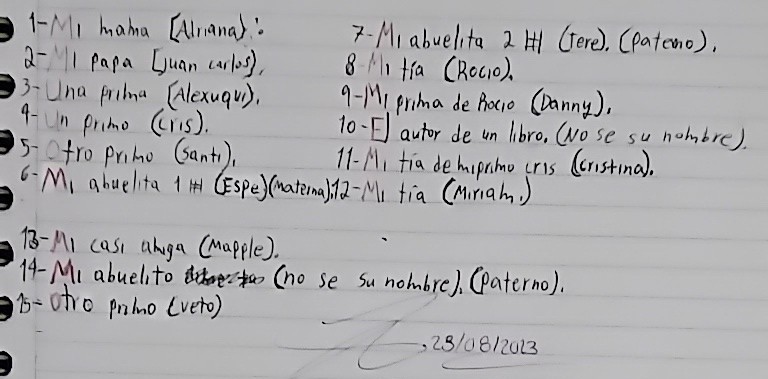 1-Mi mama (Alriana).
2-Mi papa (Juan carlos),
3-Una prima (Alexuqui),
4-Un primo (cris).
5-Otro primo (santi),
6-Mi abuelita 1# (Espe)(Materna),
7-Mi abuelita 2# (Tere). (Paterno),
8-Mi tía (Rocio),
9-Mi prima de Rocio (Danny),
10-El autor de un libro. (No se su nombre).
11-Mi tía de mi primo cris (cristina).
12-Mi tía (Miriam,)
13-Mi casi amiga (Mapple).
14-Mi abuelito (no se su nombre), (paterno),
15-otro primo (veto)
23/08/2023